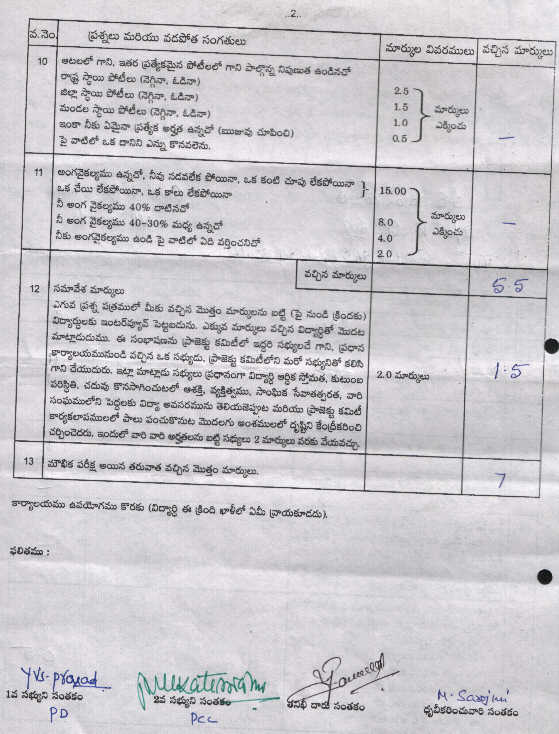 ..2..
వ.నెం. ప్రశ్నలు మరియు వడపోత సంగతులు మార్కుల వివరములు వచ్చిన మార్కులు
10 ఆటలలో గాని, ఇతర ప్రత్యేకమైన పోటీలలో గాని పాల్గొన్న నిపుణుత ఉండినచో
రాష్ట్ర స్థాయి పోటీలు (నెగ్గినా, ఓడినా) 2.5
జిల్లా స్థాయి పోటీలు (నెగ్గినా, ఓడినా) 1.5 మార్కులు
మండల స్థాయి పోటీలు (నెగ్గినా, ఓడినా) 1.0 ఎక్కించు
ఇంకా నీకు ఏమైనా ప్రత్యేక అర్హత ఉన్నచో (ఋజువు చూపించి) 0.5 –
పై వాటిలో ఒక దానిని ఎన్ను కొనవలెను.
11 అంగవైకల్యము ఉన్నచో, నీవు నడవలేక పోయినా, ఒక కంటి చూపు లేకపోయినా
ఒక చేయి లేకపోయినా, ఒక కాలు లేకపోయినా 15.00
నీ అంగ వైకల్యము 40% దాటినచో మార్కులు
నీ అంగ వైకల్యము 40-30% మధ్య ఉన్నచో 8.0 ఎక్కించు –
నీకు అంగవైకల్యము ఉండి పై వాటిలో ఏది వర్తించనిచో 4.0
2.0
వచ్చిన మార్కులు 55
12 సమావేశ మార్కులు
ఎగువ ప్రశ్న పత్రములో మీకు వచ్చిన మొత్తం మార్కులను బట్టి (పై నుండి క్రిందకు)
విద్యార్థులకు ఇంటర్వ్యూవ్ పెట్టబడును. ఎక్కువ మార్కులు వచ్చిన విద్యార్థితో మొదట
మాట్లాడుదుము. ఈ సంభాషణను ప్రాజెక్టు కమిటీలో ఇద్దరి సభ్యులచే గాని, ప్రధాన
కార్యాలయమునుండి వచ్చిన ఒక సభ్యుడు, ప్రాజెక్టు కమిటీలోని మరో సభ్యునితో కలిసి
గాని చేయుదురు. ఇట్లా మాట్లాడు సభ్యులు ప్రధానంగా విద్యార్థి ఆర్థిక స్తోమత, కుటుంబ 2.0 మార్కులు 1.5
పరిస్థితి, చదువు కొనసాగించుటలో ఆశక్తి, వ్యక్తిత్వము, సాంఘిక సేవాతత్పరత, వారి
సంఘములోని పెద్దలకు విద్యా అవసరమును తెలియజెప్పుట మరియు ప్రాజెక్టు కమిటీ
కార్యకలాపములలో పాలు పంచుకొనుట మొదలగు అంశములలో దృష్టిని కేంద్రీకరించి
చర్చించెదరు. ఇందులో వారి వారి అర్హతలను బట్టి సభ్యులు 2 మార్కులు వరకు వేయవచ్చు.
13 మౌఖిక పరీక్ష అయిన తరువాత వచ్చిన మొత్తం మార్కులు. 7
కార్యాలయము ఉపయోగము కొరకు (విద్యార్థి ఈ క్రింది ఖాళీలో ఏమీ వ్రాయకూడదు).
ఫలితము :
YVS. Prasad
1వ సభ్యుని సంతకం 2వ సభ్యుని సంతకం తనిఖీ దారు సంతకం M. Sarojini
PD PCC ధృవీకరించువారి సంతకం